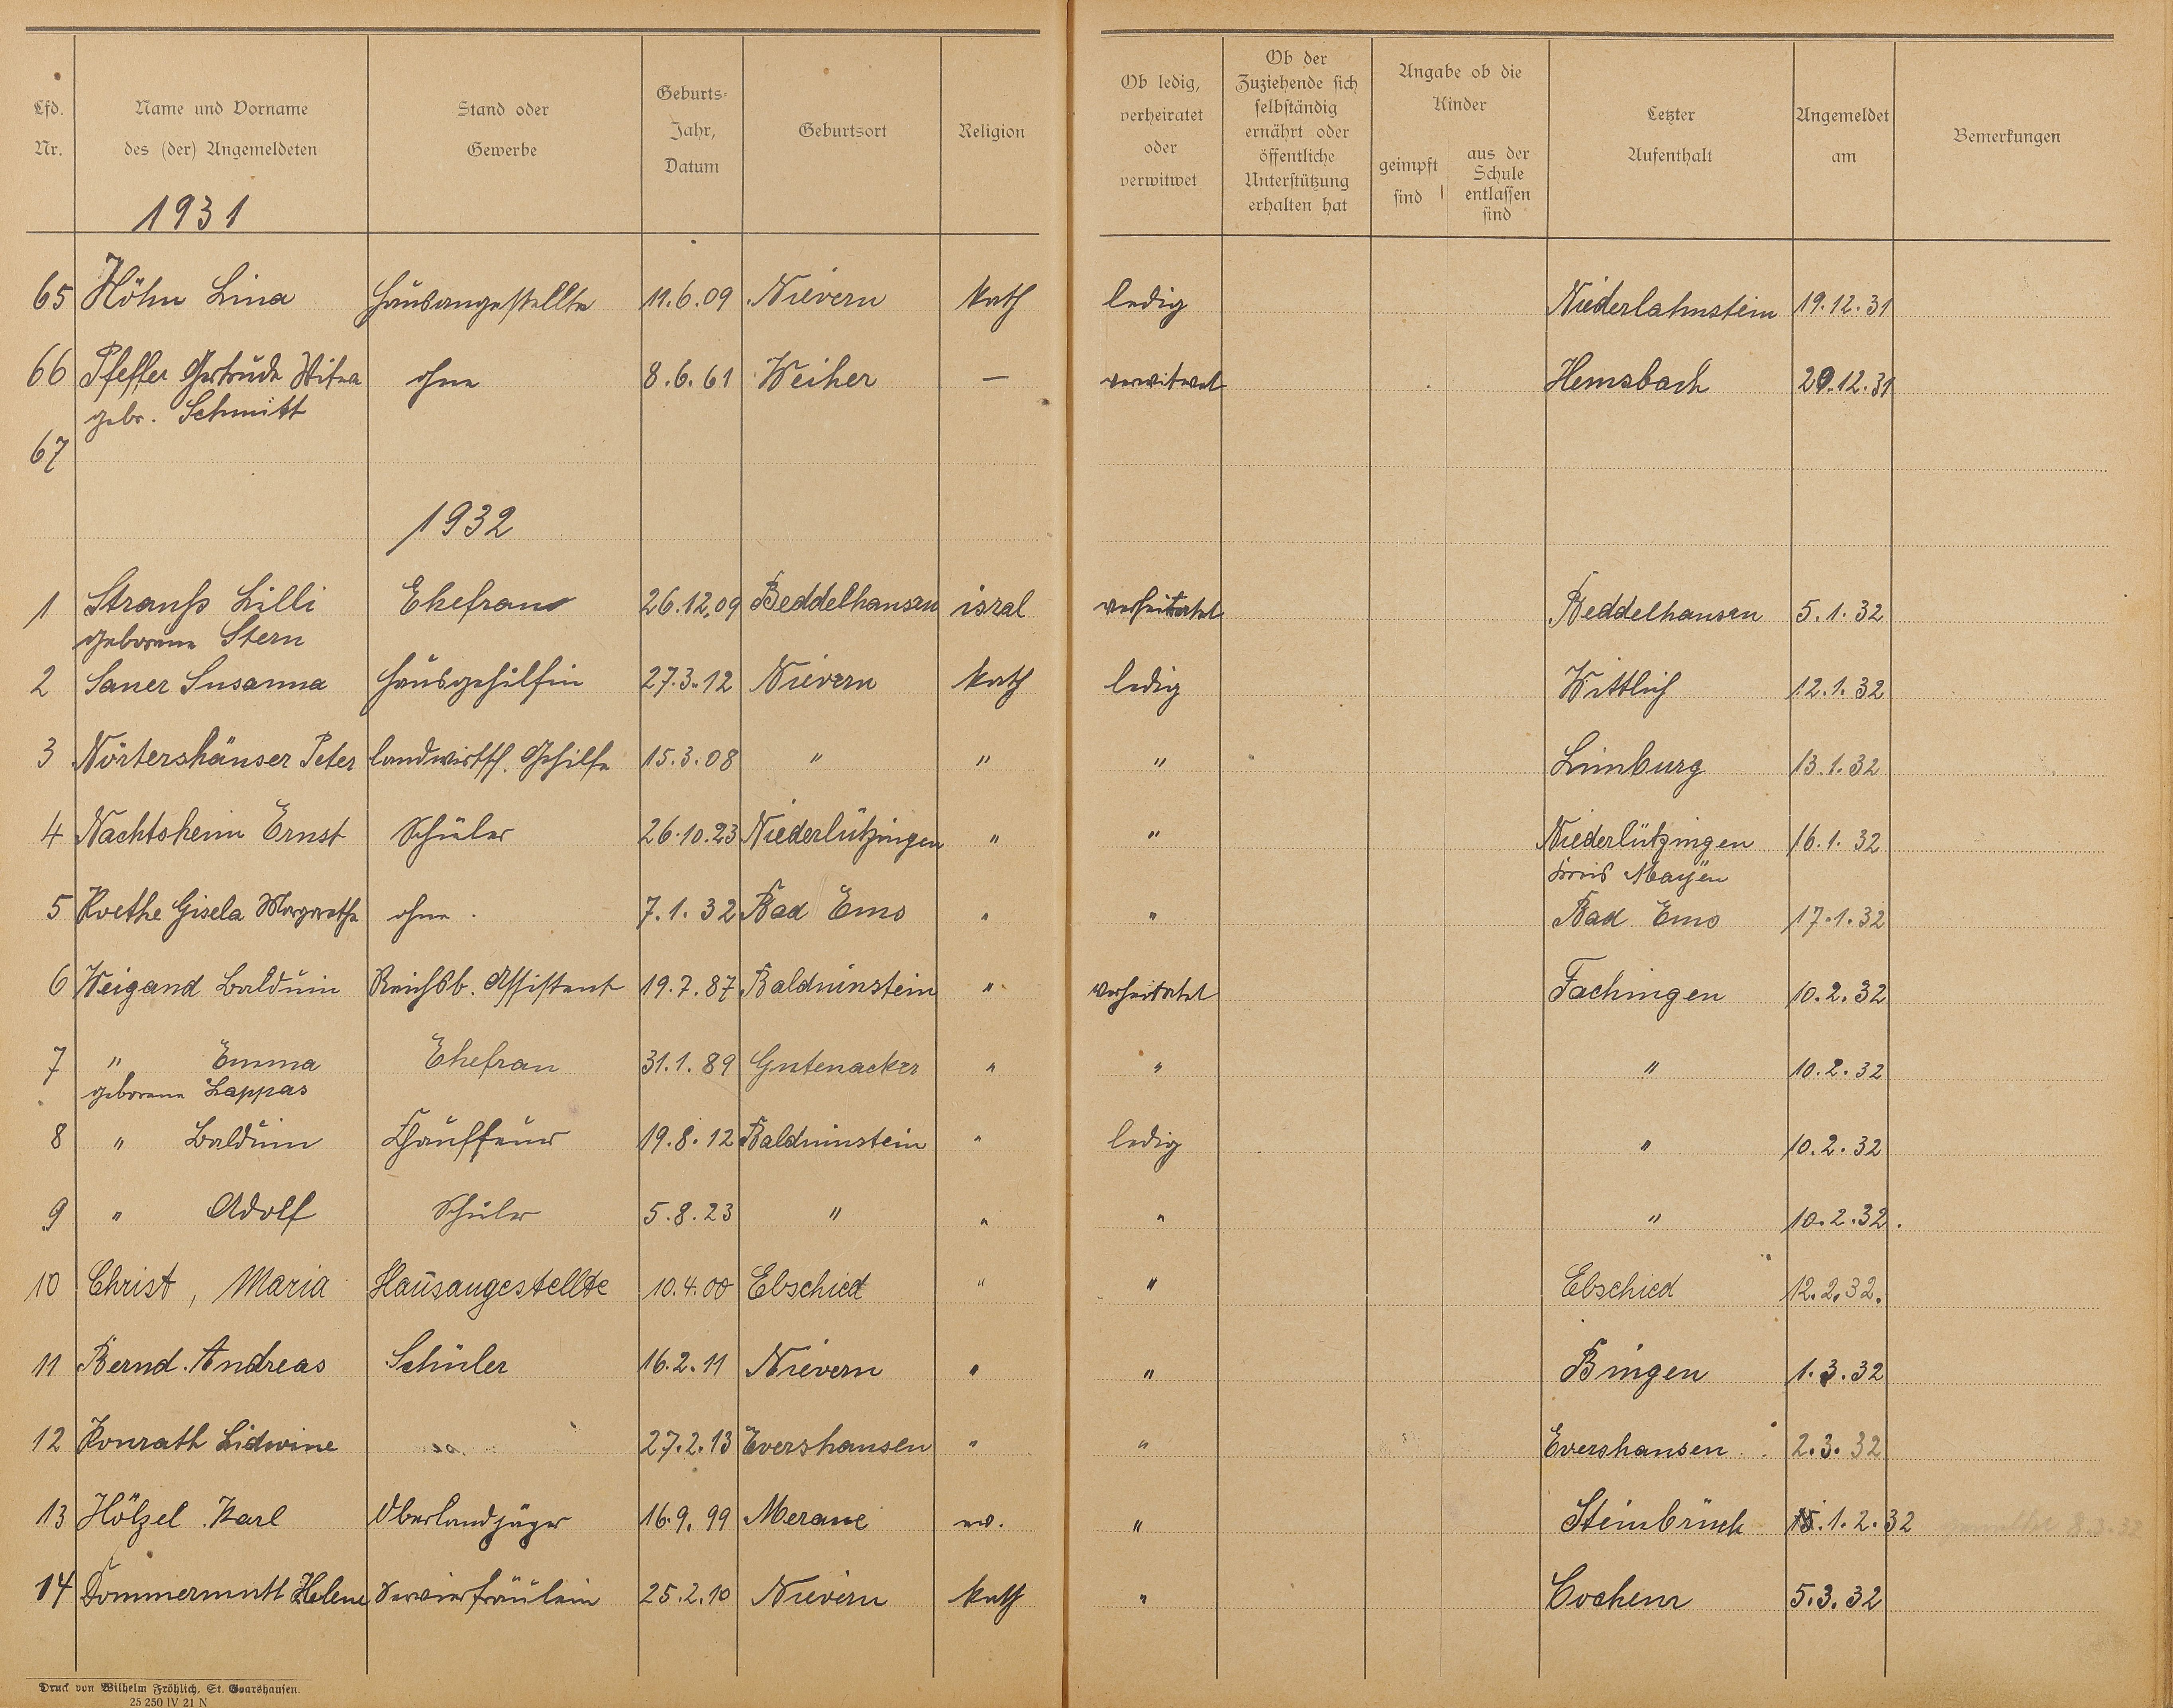 Lfd. Nr.
Name und Vorname des (der) Angemeldeten
Stand oder Gewerbe
Geburts-Jahr, Datum
Geburtsort
Religion
Ob ledig, verheiratet oder verwitwet
Ob der Zuziehende sich selbständig ernährt oder öffentliche Unterstützung erhalten hat
Angabe ob die Kinder
geimpft sind
aus der Schule entlassen sind
Letzter Aufenthalt
Angemeldet am
Bemerkungen
1931
65 Höhn Lina Hausangestellte 11.6.09 Nievern kath ledig Niederlahnstein 19.12.31
66 Pfeffer Gertrude Witwe ohne 8.6.61 Weiher — verwitwet Hemsbach 29.12.31
gebr. Schmitt
67
1932
1 Strauß Lilli Ehefrau 26.12.09 Beddelhausen isral verheiratet Beddelhausen 5.1.32
geborene Stern
2 Saner Susanna Hausgehilfin 27.3.12 Nievern kath ledig Wittlich 12.1.32
3 Nörtershäuser Peter landwirtsch. Gehilfe 15.3.08 " " " Limburg 13.1.32
4 Nachtsheim Ernst Schüler 26.10.23 Niederlützingen " " Niederlützingen 16.1.32
Kreis Mayen
5 Roethe Gisela Margarethe ohne. 7.1.32 Bad Ems " " Bad Ems 17.1.32
6 Weigand Balduin Reichsb. Assistent 19.7.87 Balduinstein " verheiratet Fachingen 10.2.32
7 " Emma Ehefrau 31.1.89 Gutenacker " " " 10.2.32
geborene Lappas
8 " Balduin Chauffeur 19.8.12 Balduinstein " ledig " 10.2.32
9 " Adolf Schüler 5.8.23 " " " " 10.2.32.
10 Christ, Maria Hausangestellte 10.4.00 Ebschied " " Ebschied 12.2.32.
11 Bernd Andreas Schüler 16.2.11 Nievern " " Bingen 1.3.32
12 Konrath Lidwine 27.2.13 Evershausen " " Evershausen 2.3.32
13 Hölzel Karl Oberlandjäger 16.9.99 Merane ev. " Steinbrück 1.2.32 8.3.32
14 Dommermuth Helene Servierfräulein 25.2.10 Nievern kath " Cochem 5.3.32
Druck von Wilhelm Fröhlich, St. Goarshausen.
25 250 IV 21 N